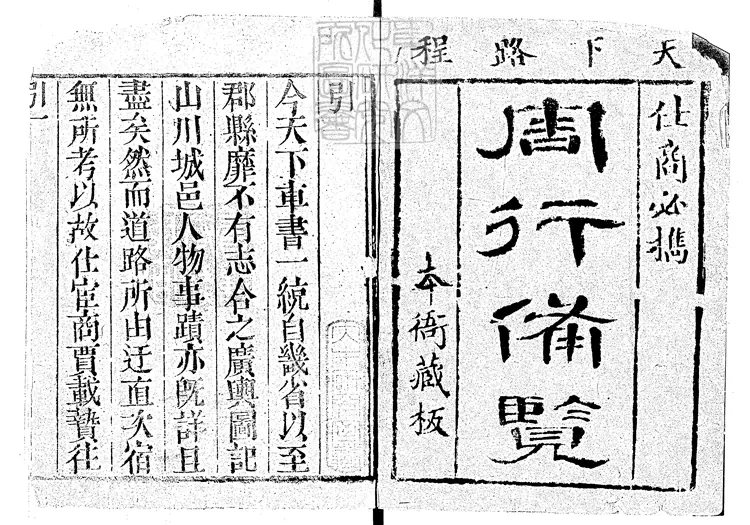 天下路程
仕商必攜
周行備覽
本衙藏板
引
今天下車書一統自畿省以至
郡縣靡不有志合之廣輿圖記
山川城邑人物事蹟亦既詳且
盡矣然而道路所由迂直次宿
無所考以故仕宦商賈載贄往
引一